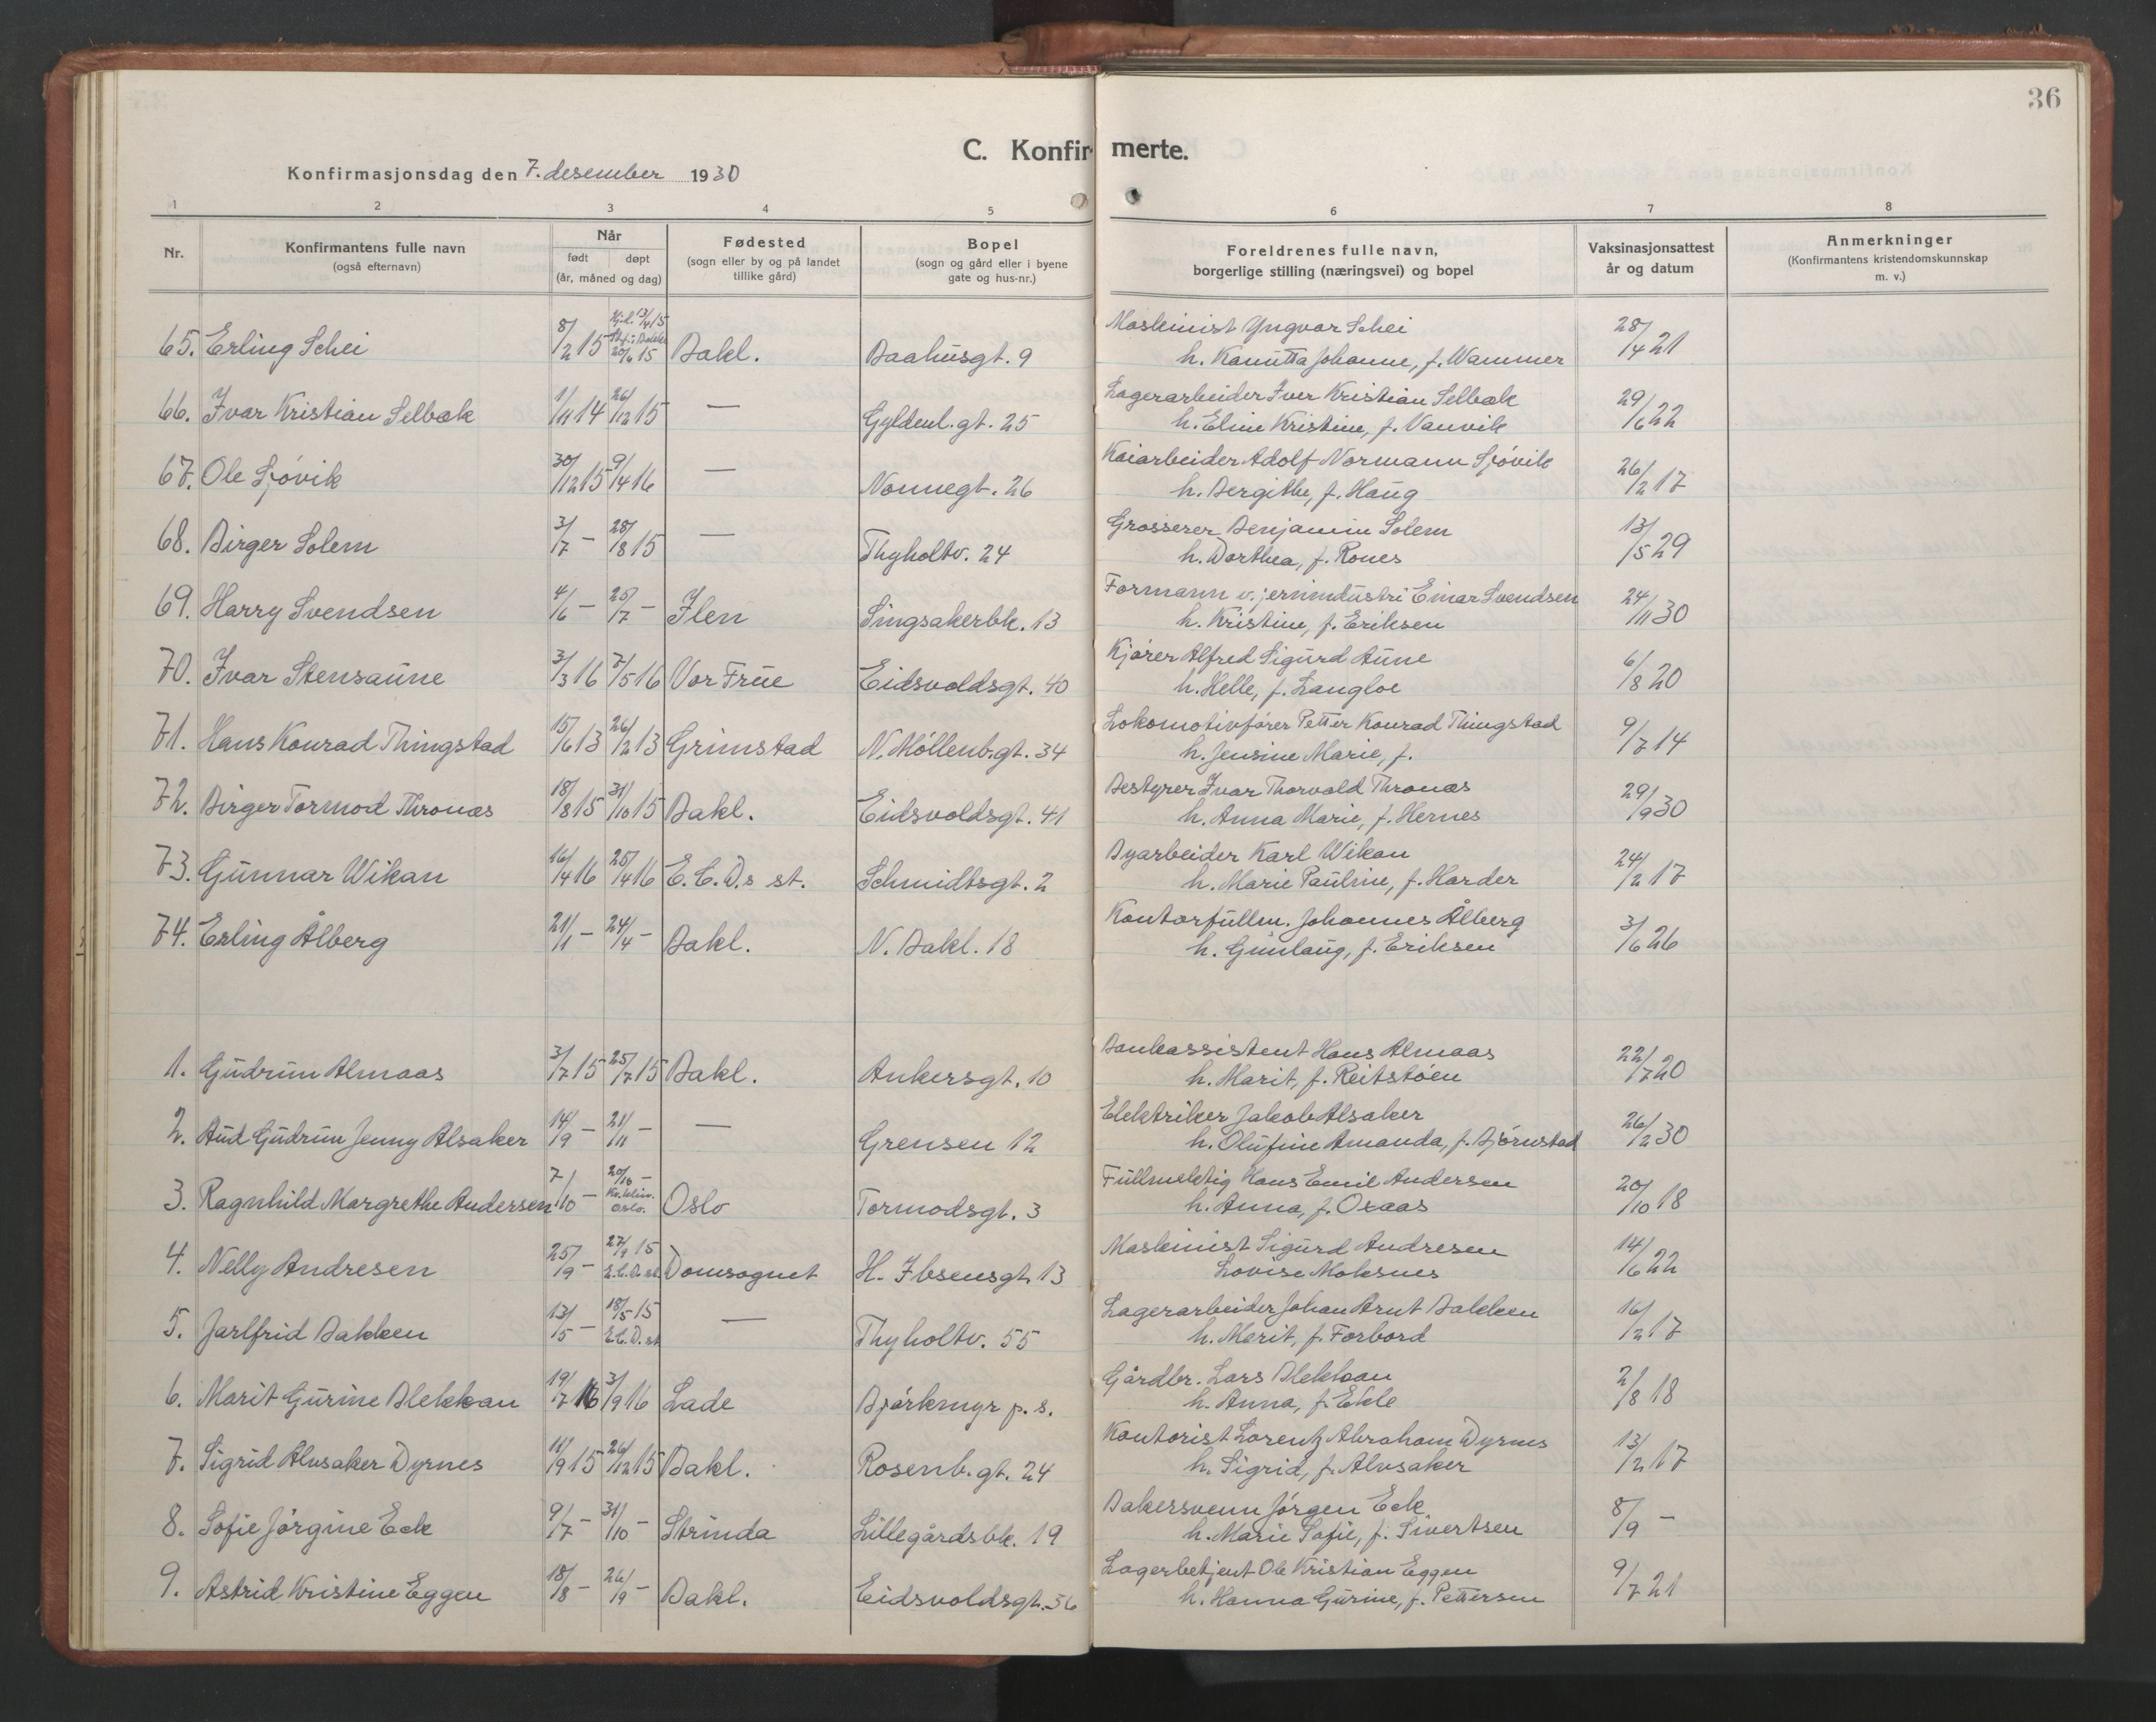 36
C. Konfirmerte.
Konfirmasjonsdag den 7. desember 1930
1 2 3 4 5 6 7 8
Nr.
Konfirmantens fulle navn
(også efternavn)
Når
født døpt
(år, måned og dag)
Fødested
(sogn eller by og på landet
tillike gård)
Bopel
(sogn og gård eller i byene
gate og hus-nr.)
Foreldrenes fulle navn,
borgerlige stilling (næringsvei) og bopel
Vaksinasjonsattest
år og datum
Anmerkninger
(Konfirmantens kristendomskunnskap
m. v.)
65. Erling Schei 8/2 15 13/4 15 20/6 15 Bakl. Baahusgt. 9 Maskinist Yngvar Schei 28/4 21
h. Kanutta Johanne, f. Wammer
66. Ivar Kristian Selbæk 1/11 14 26/12 15 — Gyldenl.gt. 25 Lagerarbeider Iver Kristian Selbæk 29/6 22
h. Eline Kristine, f. Vanvik
67. Ole Sjövik 30/12 15 9/4 16 — Nonnegt. 26 Kaiarbeider Adolf Normann Sjövik 26/2 17
h. Bergithe, f. Haug
68. Birger Solem 3/7 — 28/8 15 — Thyholtv. 24 Grosserer Benjamin Solem 13/5 29
h. Dorthea, f. Rones
69. Harry Svendsen 4/6 — 25/7 — Ilen Singsakerbk. 13 Formann v. jernindustri Einar Svendsen 24/11 30
h. Kristine, f. Eriksen
70. Ivar Stensaune 3/3 16 7/5 16 Vor Frue Eidsvoldsgt. 40 Kjörer Alfred Sigurd Aune 6/8 20
h. Helle, f. Langloe
71. Hans Konrad Thingstad 15/6 13 26/12 13 Grimstad N. Möllenb.gt. 34 Lokomotivförer Petter Konrad Thingstad 9/7 14
h. Jensine Marie, f.
72. Birger Tormod Thronæs 18/8 15 31/10 15 Bakl. Eidsvoldsgt. 41 Bestyrer Ivar Thorvald Thronæs 29/9 30
h. Anna Marie, f. Hernes
73. Gunnar Wikan 16/4 16 25/4 16 E.C.D.s st. Schmidtsgt. 2 Byarbeider Karl Wikan 24/2 17
h. Marie Pauline, f. Harder
74. Erling Ålberg 21/1 — 24/4 — Bakl. N. Bakl. 18 Kontorfullm. Johannes Ålberg 3/6 26
h. Gunlaug, f. Eriksen
1. Gudrun Almaas 3/7 15 25/7 15 Bakl. Ankersgt. 10 Bankassistent Hans Almaas 22/7 20
h. Marit, f. Reitstöen
2. Aud Gudrun Jenny Alsaker 14/9 — 21/11 — — Grensen 12 Elektriker Jakob Alsaker 26/2 30
h. Olufine Amanda, f. Björnstad
3. Ragnhild Margrethe Andersen 7/10 — 20/10 — Kv.klin. Oslo. Oslo Tormodsgt. 3 Fullmektig Hans Emil Andersen 20/10 18
h. Anna, f. Oxaas
4. Nelly Andresen 25/9 — 27/9 15 E.C.D. st. Domsognet H. Ibsensgt. 13 Maskinist Sigurd Andresen 14/6 22
Lovise Moksnes
5. Jarlfrid Bakken 13/5 — 18/5 15 E.C.D. st. — Thyholtv. 55 Lagerarbeider Johan Arnt Bakken 16/2 17
h. Merit, f. Forbord
6. Marit Gurine Blekkan 19/7 16 3/9 16 Lade Bjørkmyr p. s. Gårdbr. Lars Blekkan 2/8 18
h. Anna, f. Ekle
7. Sigrid Alvsaker Dyrnes 11/9 15 26/12 15 Bakl. Rosenb.gt. 24 Kontorist Lorentz Abraham Dyrnes 13/2 17
h. Sigrid, f. Alvsaker
8. Sofie Jörgine Eck 9/7 — 31/10 — Strinda Lillegårdsbk. 19 Bakersvenn Jörgen Eck 8/9 —
h. Marie Sofie, f. Sivertsen
9. Astrid Kristine Eggen 18/8 — 26/9 — Bakl. Eidsvoldsgt. 56 Lagerbetjent Ole Kristian Eggen 9/7 21
h. Hanna Gurine, f. Pettersen